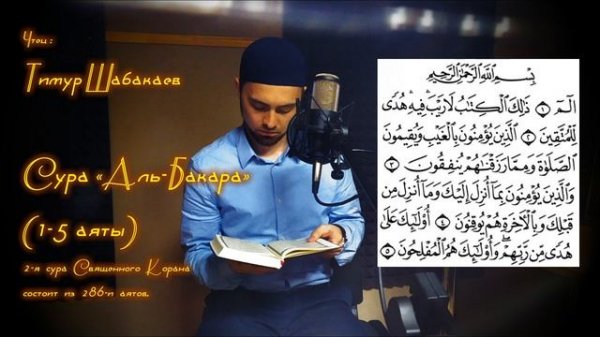 Чтец:
Тимур Шабакаев
Сура «Аль-Бакара»
(1-5 аяты)
2-я сура Священного Корана
состоит из 286-и аятов.
بِسْمِ ٱللَّهِ ٱلرَّحْمَٰنِ ٱلرَّحِيمِ
الٓمٓ ١ ذَٰلِكَ ٱلْكِتَٰبُ لَا رَيْبَ فِيهِ هُدًى
لِّلْمُتَّقِينَ ٢ ٱلَّذِينَ يُؤْمِنُونَ بِٱلْغَيْبِ وَيُقِيمُونَ
ٱلصَّلَوٰةَ وَمِمَّا رَزَقْنَٰهُمْ يُنفِقُونَ ٣
وَٱلَّذِينَ يُؤْمِنُونَ بِمَآ أُنزِلَ إِلَيْكَ وَمَآ أُنزِلَ مِن
قَبْلِكَ وَبِٱلْءَاخِرَةِ هُمْ يُوقِنُونَ ٤ أُو۟لَٰٓئِكَ عَلَىٰ
هُدًى مِّن رَّبِّهِمْ وَأُو۟لَٰٓئِكَ هُمُ ٱلْمُفْلِحُونَ ٥